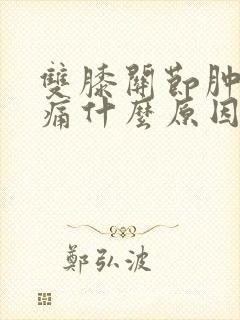 雙膝關節肿
痛什麼原因
鄭弘波